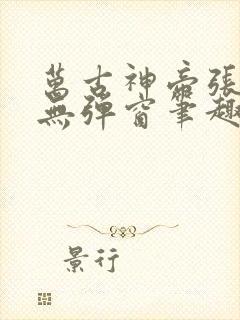 萬古神帝張
無彈窗筆趣
景行